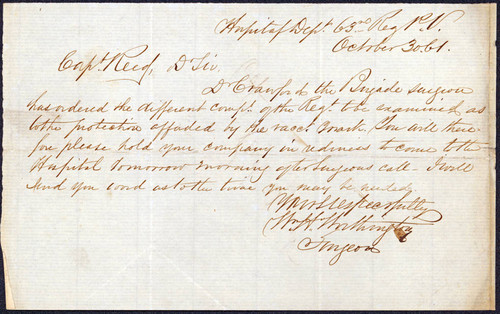 Hospital Dept. 63rd Reg P.V.
October 30.61.
Capt. Reed, Dr Sir.
Dr Crawford the Brigade surgeon
has ordered the different compy. of the Regt. to be examined as
to the protection affoded by the vacci mark. You will there-
fore please hold your company in rediness to come to the
Hospital tomorrow morning after Surgeons call - I will
send you word as to the time you may be needed
Yours Respectfully
Wm. H. Worthington
Surgeon